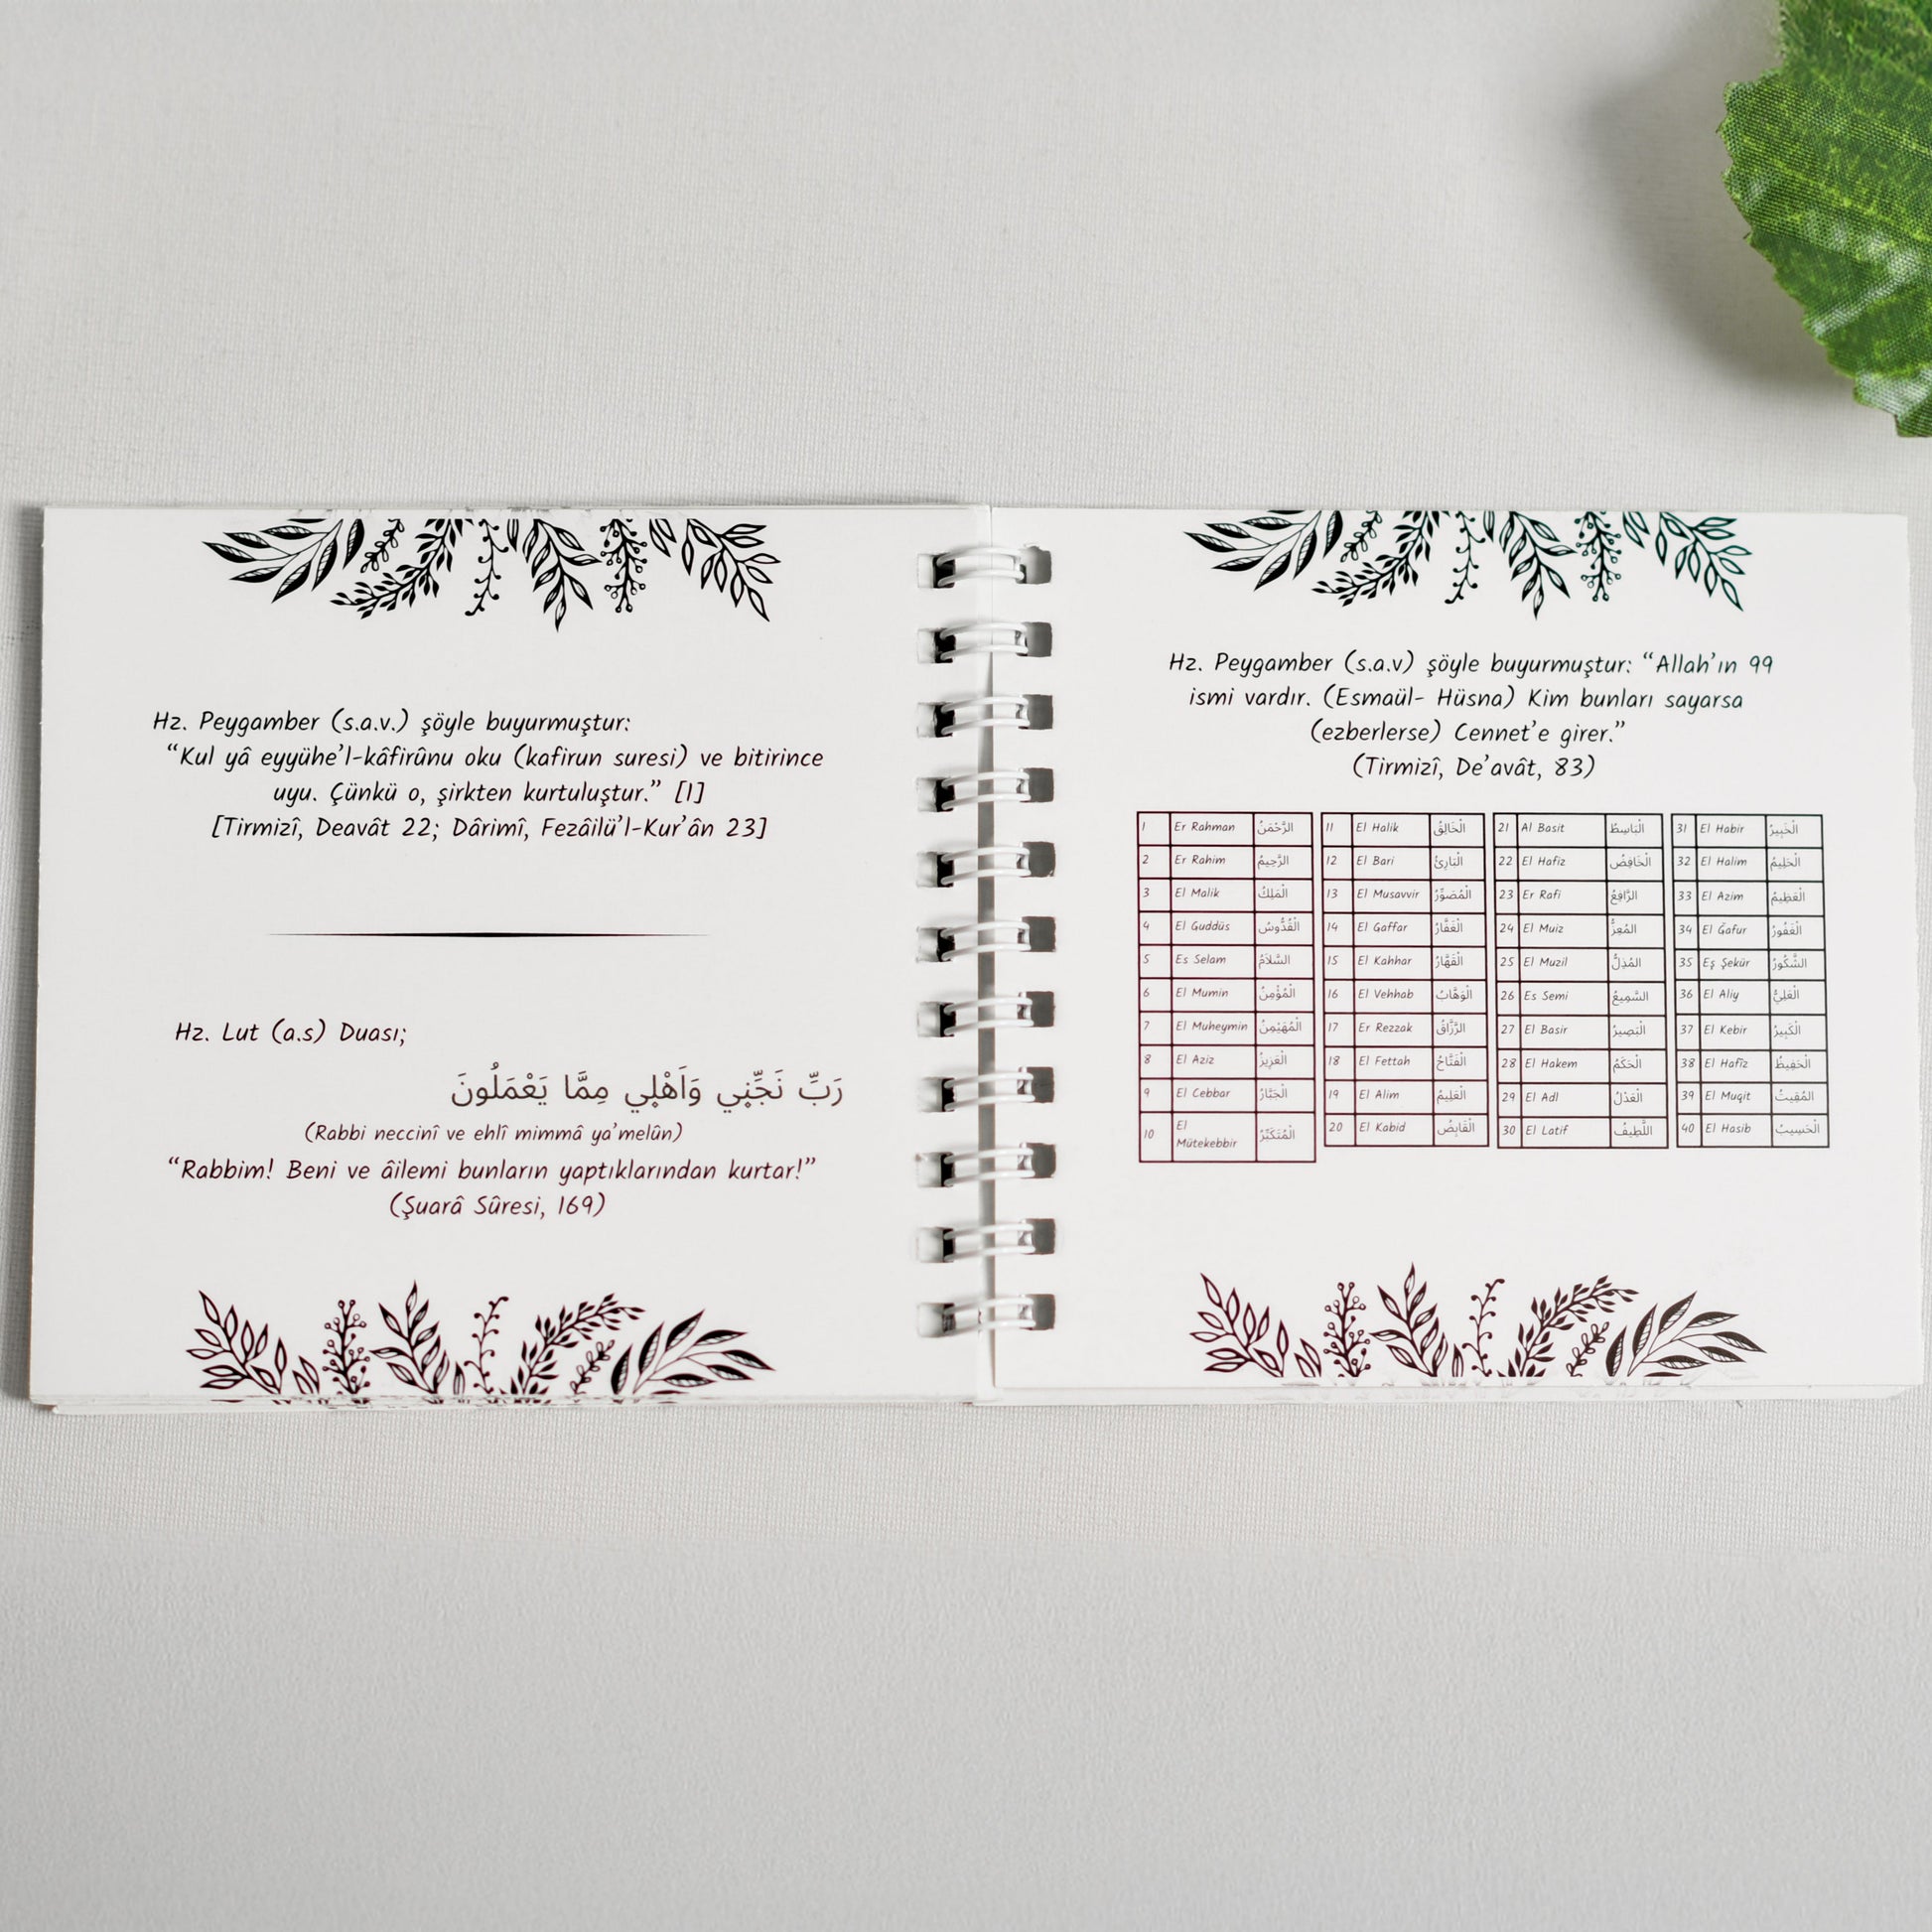 Hz. Peygamber (s.a.v.) şöyle buyurmuştur:
“Kul yâ eyyühe’l-kâfirûnu oku (kafirun suresi) ve bitirince
uyu. Çünkü o, şirkten kurtuluştur.” [1]
[Tirmizî, Deavât 22; Dârimî, Fezâilü’l-Kur’ân 23]
Hz. Lut (a.s) Duası;
رَبِّ نَجِّنِي وَاَهْلِي مِمَّا يَعْمَلُونَ
(Rabbi neccinî ve ehlî mimmâ ya’melûn)
“Rabbim! Beni ve âilemi bunların yaptıklarından kurtar!”
(Şuarâ Sûresi, 169)
Hz. Peygamber (s.a.v) şöyle buyurmuştur: “Allah’ın 99
ismi vardır. (Esmaül- Hüsna) Kim bunları sayarsa
(ezberlerse) Cennet’e girer.”
(Tirmizî, De’avât, 83)
1 Er Rahman الرَّحْمَنُ
2 Er Rahim الرَّحِيمُ
3 El Malik الْمَلِكُ
4 El Guddüs الْقُدُّوسُ
5 Es Selam السَّلاَمُ
6 El Mumin الْمُؤْمِنُ
7 El Muheymin الْمُهَيْمِنُ
8 El Aziz الْعَزِيزُ
9 El Cebbar الْجَبَّارُ
10 El Mütekebbir الْمُتَكَبِّرُ
11 El Halik الْخَالِقُ
12 El Bari الْبَارِئُ
13 El Musavvir الْمُصَوِّرُ
14 El Gaffar الْغَفَّارُ
15 El Kahhar الْقَهَّارُ
16 El Vehhab الْوَهَّابُ
17 Er Rezzak الرَّزَّاقُ
18 El Fettah الْفَتَّاحُ
19 El Alim الْعَلِيمُ
20 El Kabid الْقَابِضُ
21 Al Basit الْبَاسِطُ
22 El Hafiz الْخَافِضُ
23 Er Rafi الرَّافِعُ
24 El Muiz الْمُعِزُّ
25 El Muzil الْمُذِلُّ
26 Es Semi السَّمِيعُ
27 El Basir الْبَصِيرُ
28 El Hakem الْحَكَمُ
29 El Adl الْعَدْلُ
30 El Latif اللَّطِيفُ
31 El Habir الْخَبِيرُ
32 El Halim الْحَلِيمُ
33 El Azim الْعَظِيمُ
34 El Ğafur الْغَفُورُ
35 Eş Şekür الشَّكُورُ
36 El Aliy الْعَلِيُّ
37 El Kebir الْكَبِيرُ
38 El Hafîz الْحَفِيظُ
39 El Mugit الْمُقِيتُ
40 El Hasib الْحَسِيبُ